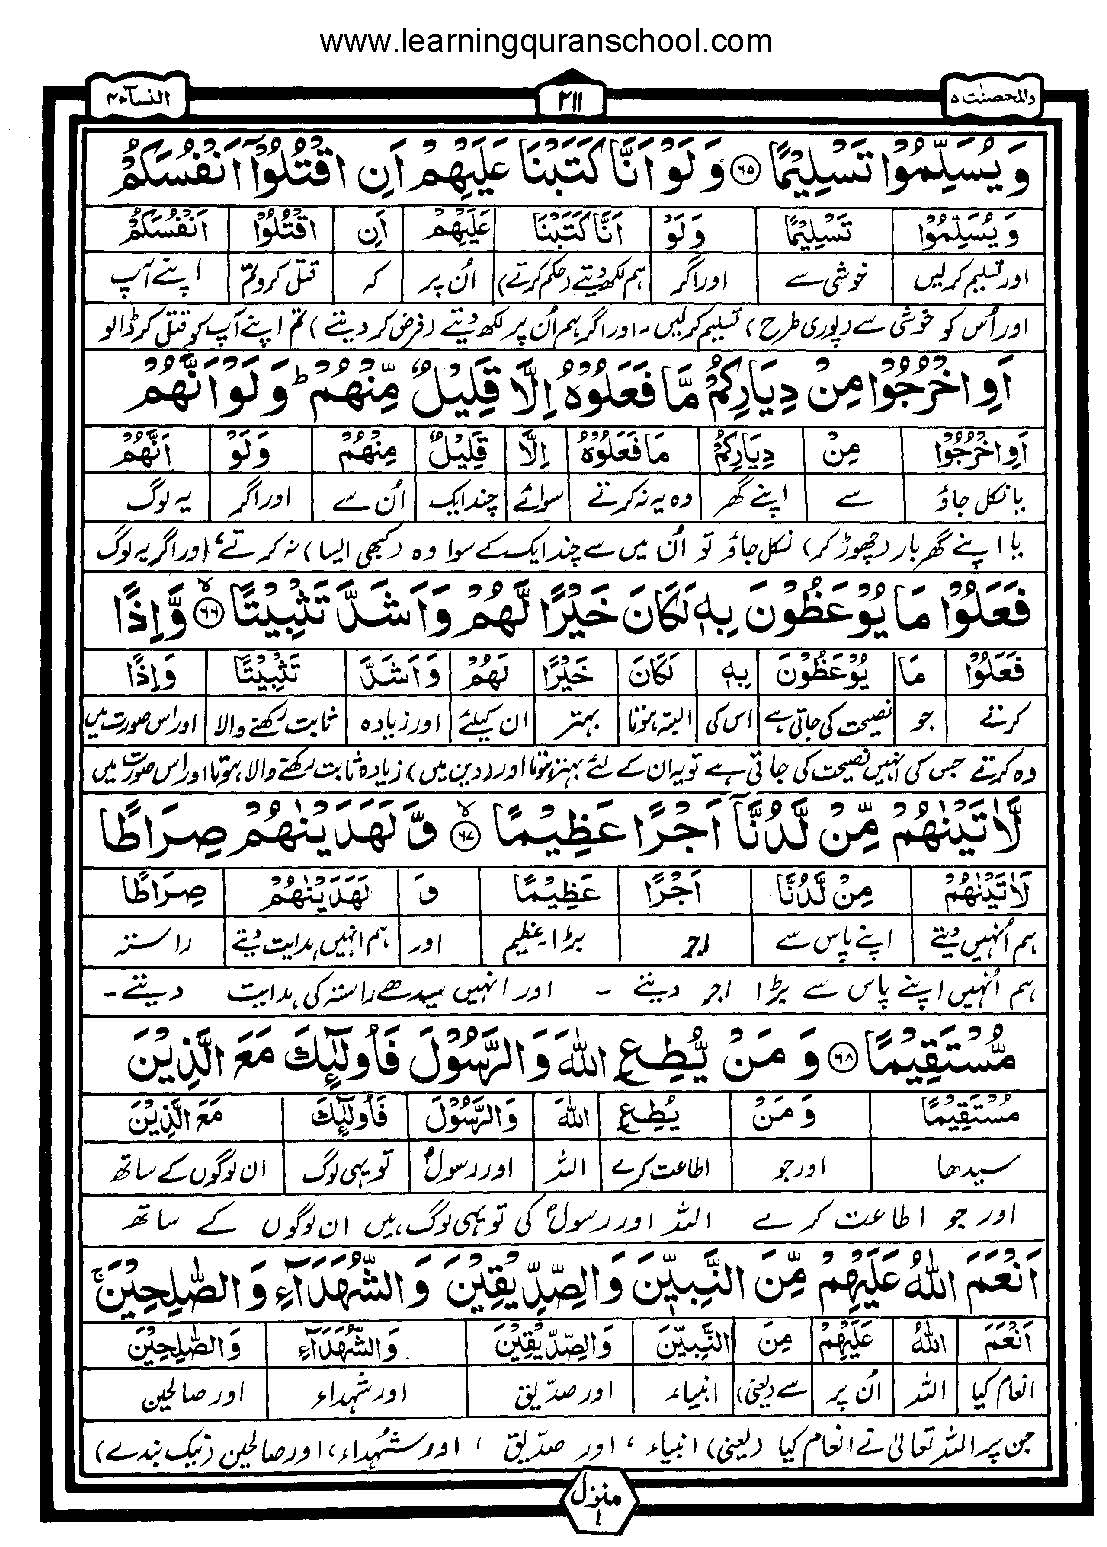 www.learningquranschool.com
والمحصنت ۵
۲۱۱
النسآء ۴
وَيُسَلِّمُوْا تَسْلِيْمًا ﴿۶۵﴾ وَلَوْ اَنَّا كَتَبْنَا عَلَيْهِمْ اَنِ اقْتُلُوْٓا اَنْفُسَكُمْ
وَيُسَلِّمُوْا تَسْلِيْمًا وَلَوْ اَنَّا كَتَبْنَا عَلَيْهِمْ اَنِ اقْتُلُوْٓا اَنْفُسَكُمْ
اور تسلیم کرلیں خوشی سے اور اگر ہم لکھ دیتے (حکم کرتے) اُن پر کہ قتل کرو تم اپنے آپ
اور اُس کو خوشی سے (پوری طرح) تسلیم کرلیں۔ اور اگر ہم اُن پر لکھ دیتے (فرض کر دیتے) تم اپنے آپ کو قتل کر ڈالو
اَوِ اخْرُجُوْا مِنْ دِيَارِكُمْ مَّا فَعَلُوْهُ اِلَّا قَلِيْلٌ مِّنْهُمْ ؕ وَلَوْ اَنَّهُمْ
اَوِ اخْرُجُوْا مِنْ دِيَارِكُمْ مَا فَعَلُوْهُ اِلَّا قَلِيْلٌ مِنْهُمْ وَلَوْ اَنَّهُمْ
یا نکل جاؤ سے اپنے گھر وہ یہ نہ کرتے سوائے چند ایک اُن سے اور اگر یہ لوگ
یا اپنے گھر بار (چھوڑ کر) نکل جاؤ تو اُن میں سے چند ایک کے سوا وہ (کبھی ایسا) نہ کرتے، اور اگر یہ لوگ
فَعَلُوْا مَا يُوْعَظُوْنَ بِهٖ لَكَانَ خَيْرًا لَّهُمْ وَاَشَدَّ تَثْبِيْتًا ﴿۶۶﴾ۙ وَّاِذًا
فَعَلُوْا مَا يُوْعَظُوْنَ بِهٖ لَكَانَ خَيْرًا لَهُمْ وَاَشَدَّ تَثْبِيْتًا وَاِذًا
کرتے جو نصیحت کی جاتی ہے اس کی البتہ ہوتا بہتر ان کیلئے اور زیادہ ثابت رکھنے والا اور اس صورت میں
وہ کرتے جس کی انہیں نصیحت کی جاتی ہے تو یہ ان کے لئے بہتر ہوتا اور (دین میں) زیادہ ثابت رکھنے والا ہوتا اور اس صورت میں
لَّاٰتَيْنٰهُمْ مِّنْ لَّدُنَّآ اَجْرًا عَظِيْمًا ﴿۶۷﴾ۙ وَّلَهَدَيْنٰهُمْ صِرَاطًا
لَاٰتَيْنٰهُمْ مِنْ لَّدُنَّا اَجْرًا عَظِيْمًا وَ لَهَدَيْنٰهُمْ صِرَاطًا
ہم اُنہیں دیتے اپنے پاس سے اجر بڑا عظیم اور ہم انہیں ہدایت دیتے راستہ
ہم اُنہیں اپنے پاس سے بڑا اجر دیتے ۔ اور انہیں سیدھے راستہ کی ہدایت دیتے۔
مُّسْتَقِيْمًا ﴿۶۸﴾ وَمَنْ يُّطِعِ اللّٰهَ وَالرَّسُوْلَ فَاُولٰٓئِكَ مَعَ الَّذِيْنَ
مُسْتَقِيْمًا وَمَنْ يُطِعِ اللّٰهَ وَالرَّسُوْلَ فَاُولٰٓئِكَ مَعَ الَّذِيْنَ
سیدھا اور جو اطاعت کرے اللہ اور رسولؐ تو یہی لوگ ان لوگوں کے ساتھ
اور جو اطاعت کرے اللہ اور رسولؐ کی تو یہی لوگ ہیں ان لوگوں کے ساتھ
اَنْعَمَ اللّٰهُ عَلَيْهِمْ مِّنَ النَّبِيّٖنَ وَالصِّدِّيْقِيْنَ وَالشُّهَدَآءِ وَالصّٰلِحِيْنَ ۚ
اَنْعَمَ اللّٰهُ عَلَيْهِمْ مِنَ النَّبِيّٖنَ وَالصِّدِّيْقِيْنَ وَالشُّهَدَآءِ وَالصّٰلِحِيْنَ
انعام کیا اللہ اُن پر سے (یعنی) انبیاء اور صدیق اور شہداء اور صالحین
جن پر اللہ تعالیٰ نے انعام کیا (یعنی) انبیاء، اور صدیق، اور شہداء، اور صالحین (نیک بندے)
منزل ۱